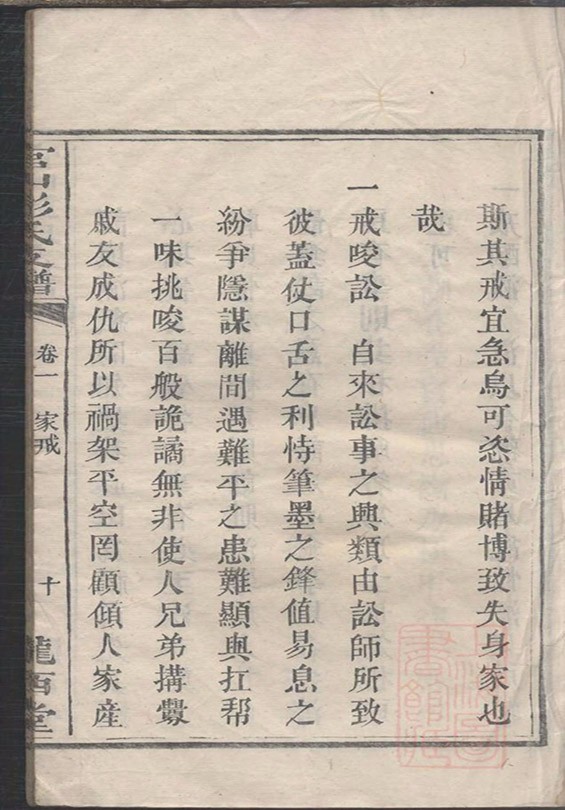 斯其戒宜急鳥可恣情賭博致失身家也
哉
一戒唆訟　自來訟事之興類由訟師所致
彼蓋仗口舌之利恃筆墨之鋒值易息之
紛爭隱謀離間遇難平之患難顯與扛帮
一味挑唆百般詭譎無非使人兄弟搆釁
戚友成仇所以禍架平空罔顧傾人家產
彭氏支譜
卷一
家戒
十